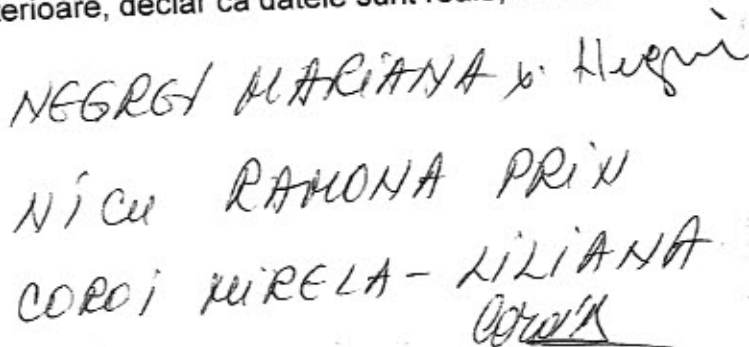 terioare, declar că datele sunt reale,
NEGREI MARIANA x. Negrei
NICU RAMONA PRIN
COROI MIRELA - LILIANA